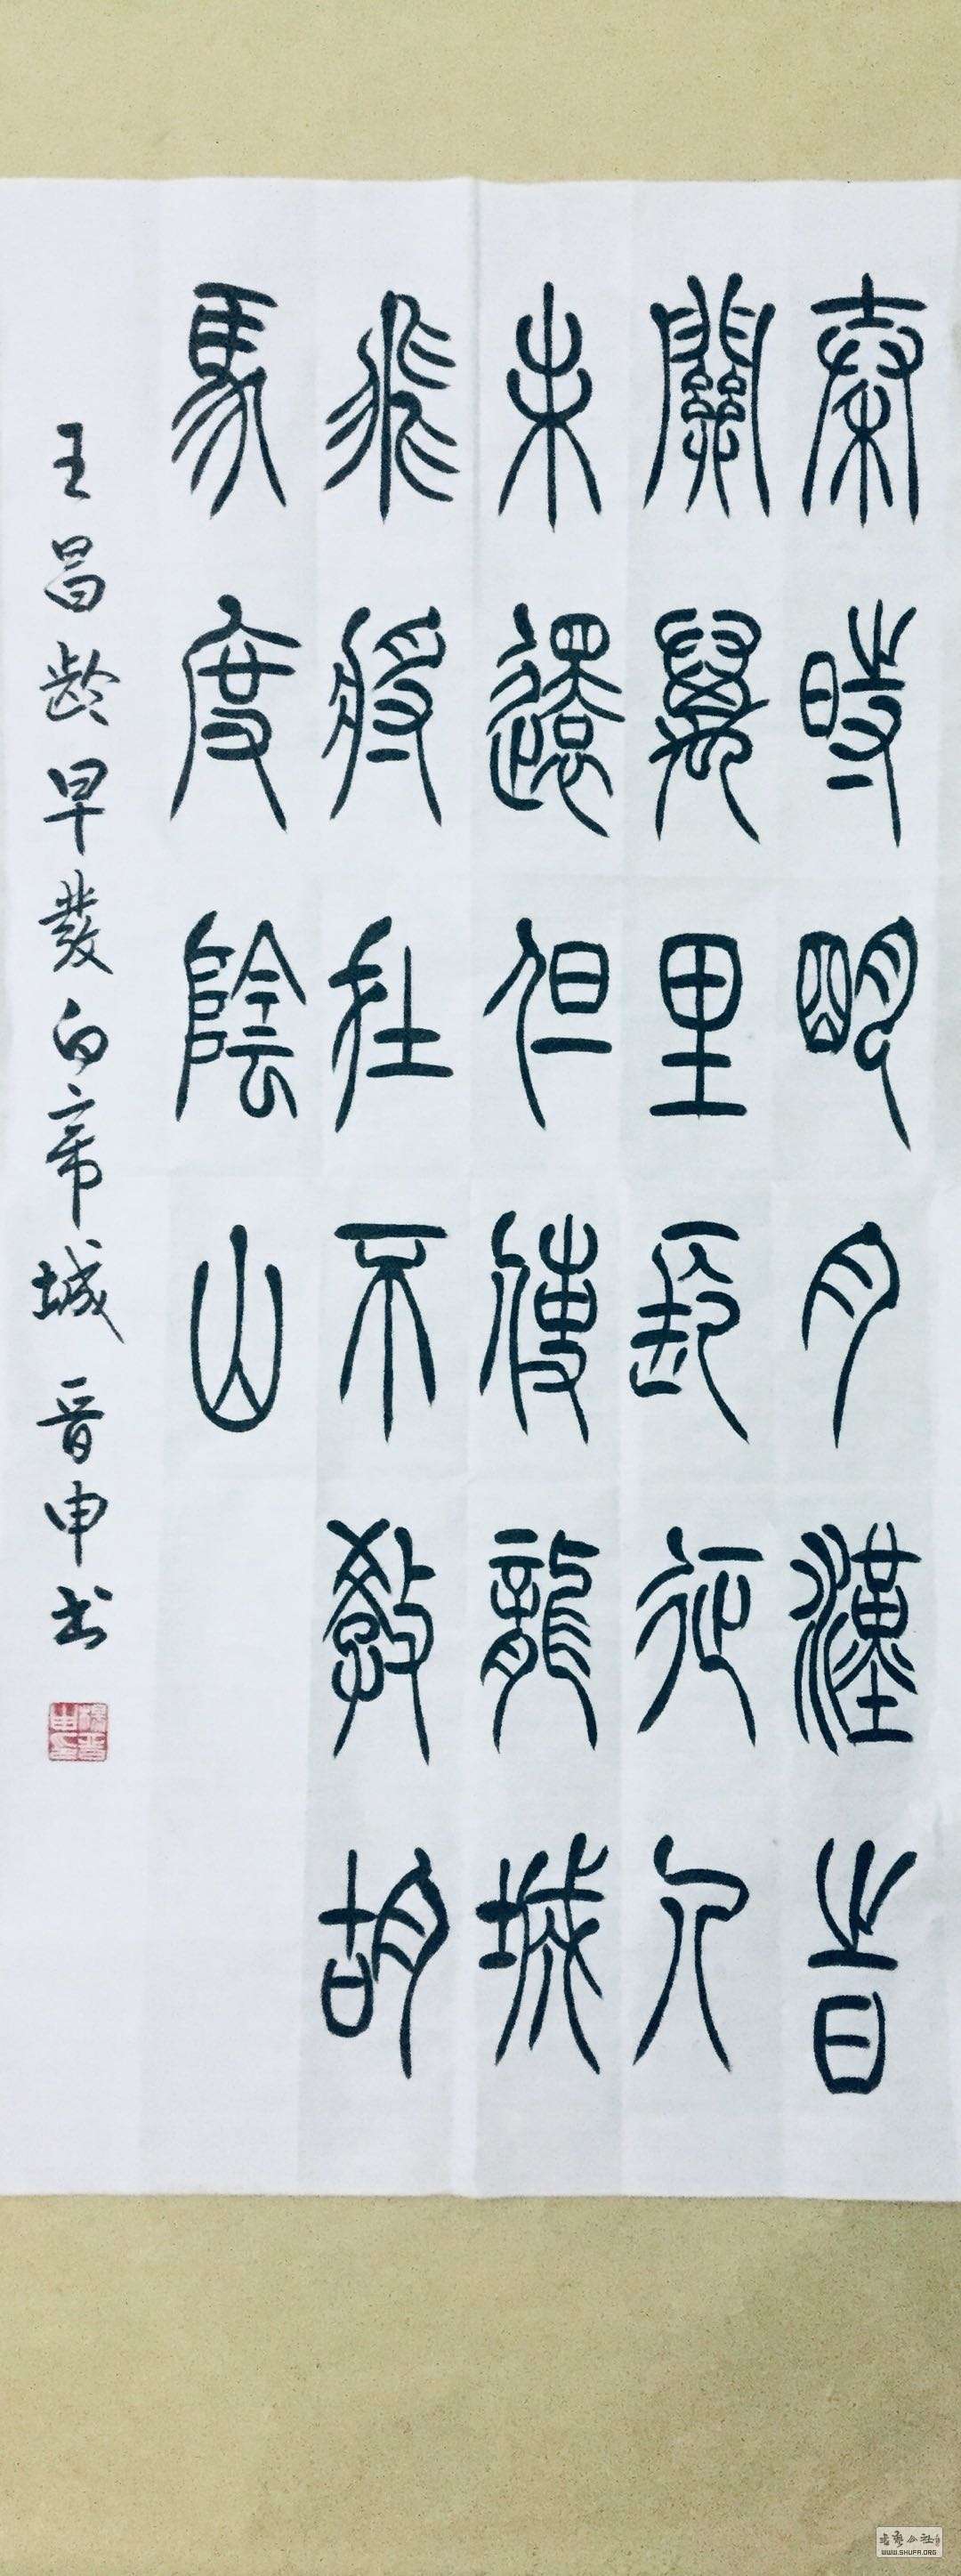 秦時明月漢時
關萬里長征人
未還但使龍城
飛將在不教胡
馬度陰山
王昌齡早發白帝城 晉申书
WWW.SHUFA.ORG